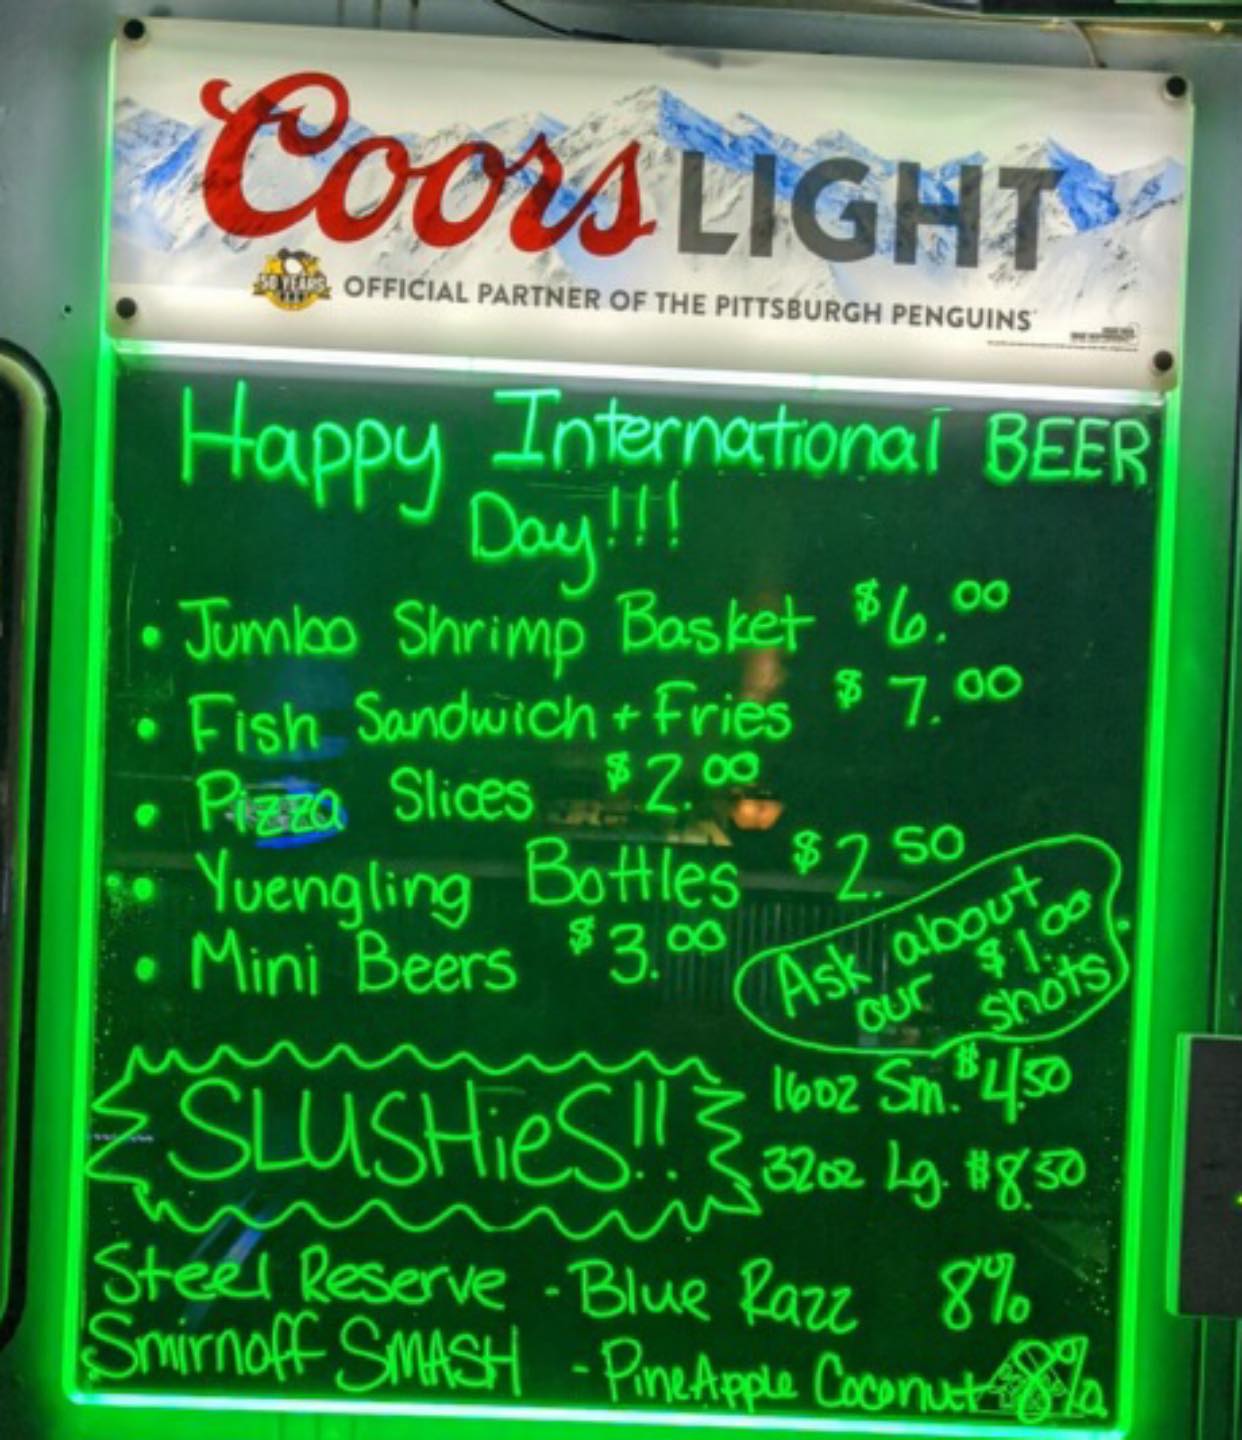 Coors LIGHT
50 YEARS
OFFICIAL PARTNER OF THE PITTSBURGH PENGUINS
Happy International BEER
Day!!!
• Jumbo Shrimp Basket $6.00
• Fish Sandwich + Fries $7.00
• Pizza Slices $2.00
• Yuengling Bottles $2.50
• Mini Beers $3.00
Ask about
our $1.00
shots
SLUSHieS!!
16oz Sm. $4.50
32oz Lg. $8.50
Steel Reserve - Blue Razz 8%
Smirnoff SMASH - PineApple Coconut 8%